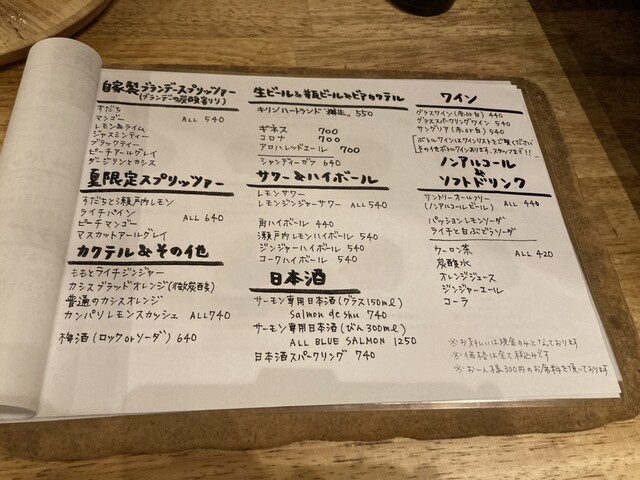 自家製ブランデースプリッツァー
(ブランデーの炭酸割り)
すだち
マンゴー
レモン&ライム
ジャスミンティー
ブラックティー
ピーチアールグレイ
ダージリンとカシス
ALL 540
夏限定スプリッツァー
すだちと瀬戸内レモン
ライチパイン
ピーチマンゴー
マスカットアールグレイ
ALL 640
カクテル&その他
ももとライチジンジャー
カシスブラッドオレンジ(微炭酸)
普通のカシスオレンジ
カンパリレモンスカッシュ ALL740
梅酒(ロックorソーダ) 640
生ビール&瓶ビール&ビアカクテル
キリンハートランド 550
ギネス 700
コロナ 700
アロハレッドエール 700
シャンディーガフ 640
サワー&ハイボール
レモンサワー
レモンジンジャーサワー ALL 540
角ハイボール 440
瀬戸内レモンハイボール 540
ジンジャーハイボール 540
コークハイボール 540
日本酒
サーモン専用日本酒(グラス150ml)
Salmon de shu 740
サーモン専用日本酒(びん300ml)
ALL BLUE SALMON 1250
日本酒スパークリング 740
ワイン
グラスワイン(赤or白) 440
グラススパークリングワイン 540
サングリア(赤or白) 540
ボトルワインはワインリストをご覧ください
その他ボトルワインあります。スタッフまで!!
ノンアルコール
&
ソフトドリンク
サントリーオールフリー
(ノンアルコールビール) ALL 440
パッションレモンソーダ
ライチと白ぶどうソーダ
ウーロン茶
炭酸水
オレンジジュース
ジンジャーエール
コーラ
ALL 420
※お支払いは現金のみとなっております
※価格は全て税込みです
※お一人様300円のお席料を頂いております